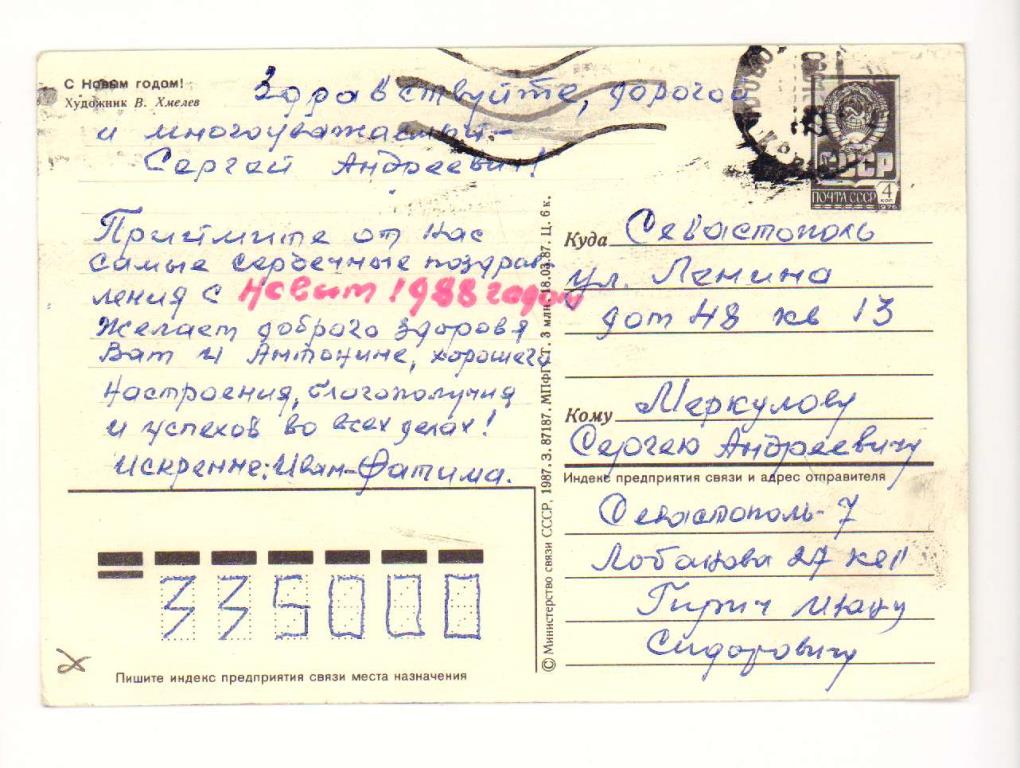 С Новым годом!
Художник В. Хмелев
Здравствуйте, дорогой
и многоуважаемый-
Сергей Андреевич!
Приймите от нас
самые сердечные поздрав
ления с Новым 1988 годом
Желаем доброго здоровя
Вам и Антонине, хорошего
настроения, благополучия
и успехов во всех делах!
Искренне: Иван-Фатима.
Пишите индекс предприятия связи места назначения
335000
© Министерство связи СССР, 1987. З. 87187. МПФГ. 3 млн. 18.03.87. Ц. 6 к.
СССР
ПОЧТА СССР
4
коп
1976
Куда Севастополь
ул. Ленина
дом 48 кв 13
Кому Меркулову
Сергею Андреевичу
Индекс предприятия связи и адрес отправителя
Севастополь-7
Лобанова 27 кв 1
Гирич Ивану
Сидоровичу